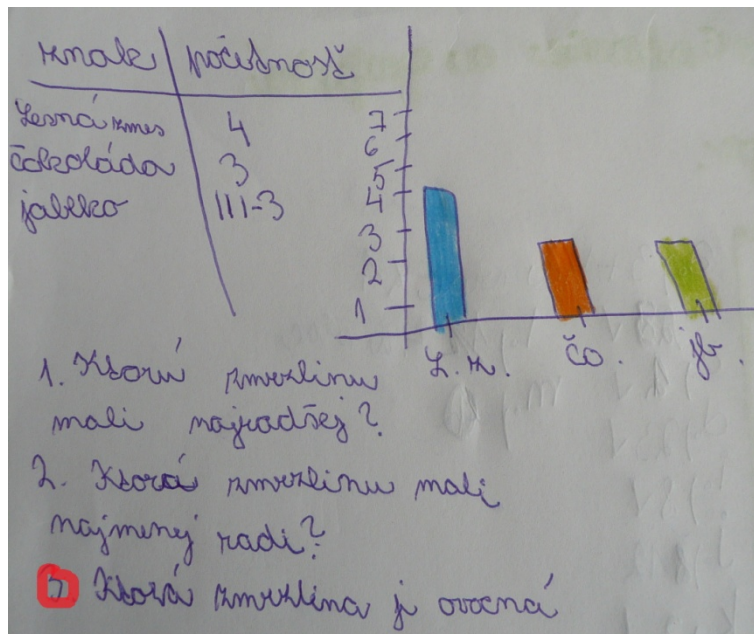 znak početnosť
Lesná zmes 4
čokoláda 3
jablko III-3
7
6
5
4
3
2
1
L. z. čo. jb.
1. Ktorú zmrzlinu
mali najradšej?
2. Ktorá zmrzlinu mali
najmenej radi?
Ktorá zmrzlina je ovocná